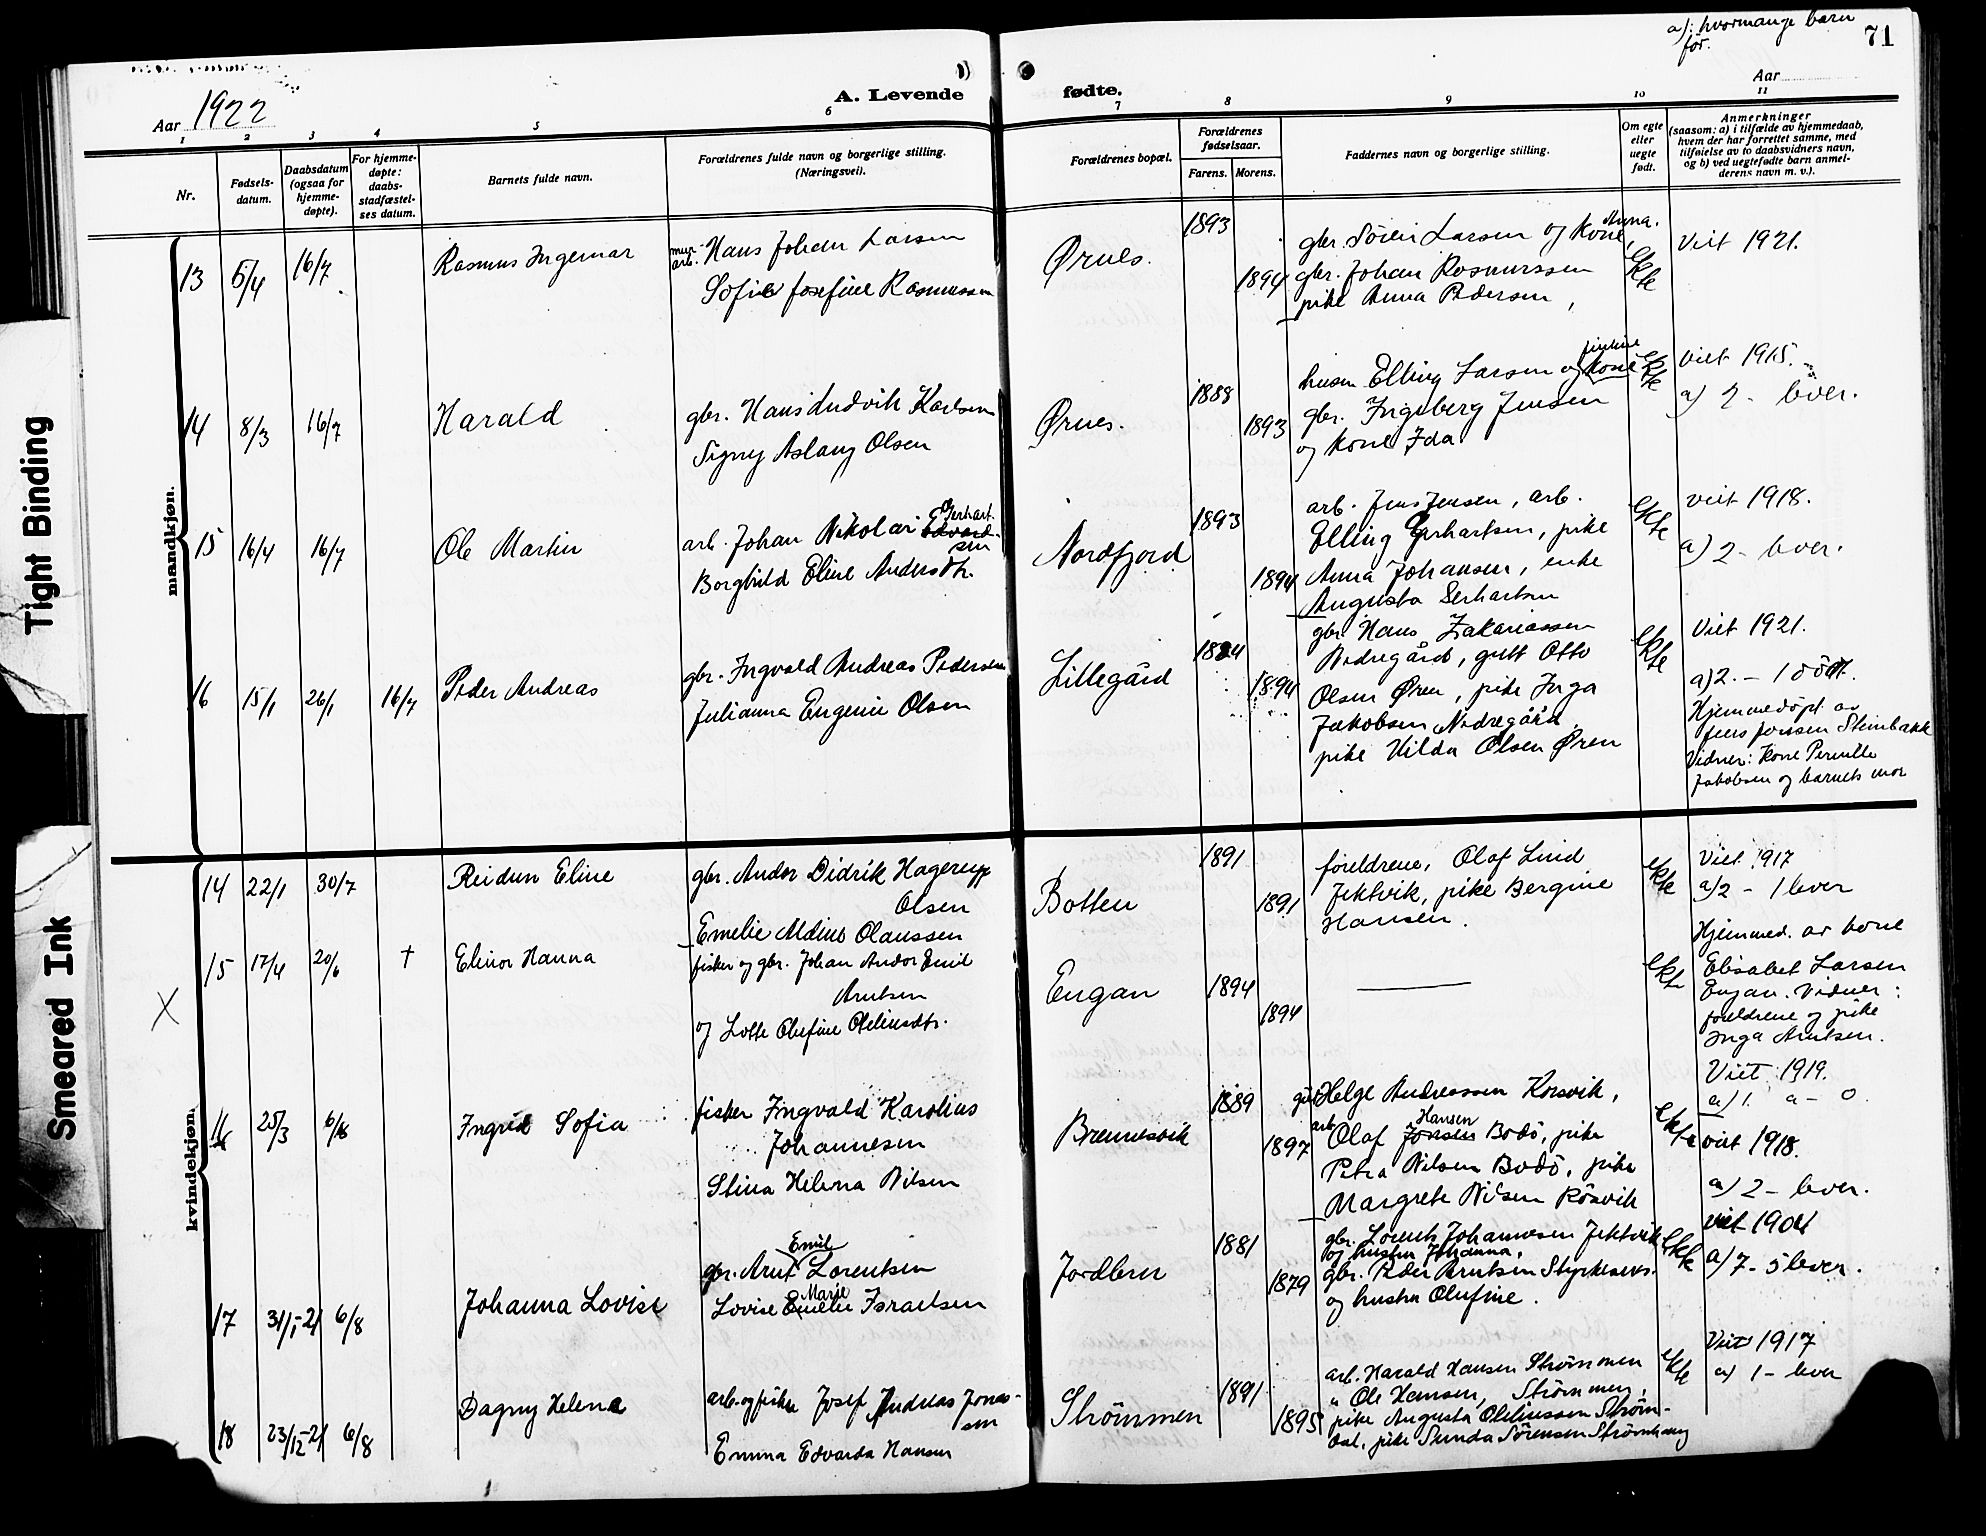 a): hvormange barn
før.
71
Aar 1922
A. Levende fødte.
Aar
1 2 3 4 5 6 7 8 9 10 11
Nr.
Fødsels-
datum.
Daabsdatum
(ogsaa for
hjemme-
døpte).
For hjemme-
døpte:
daabs-
stadfæstel-
ses datum.
Barnets fulde navn.
Forældrenes fulde navn og borgerlige stilling.
(Næringsvei).
Forældrenes bopæl.
Forældrenes
fødselsaar.
Farens. Morens.
Faddernes navn og borgerlige stilling.
Om egte
eller
uegte
født.
Anmerkninger
(saasom: a) i tilfælde av hjemmedaab,
hvem der har forrettet samme, med
tilføielse av to daabsvidners navn,
og b) ved uegtefødte barn anmel-
derens navn m. v.).
mandkjøn.
13 5/4 16/7 Rasmus Ingemar
mur-
arb. Hans Johan Larsen
Sofie Josefine Rasmussen
Ørnes.
1893
1894
gbr. Søren Larsen og kone Anna.
gbr. Johan Rasmussen
pike Anna Pedersen,
ekte
Viet 1921.
14 8/3 16/7 Harald
gbr. Hans Ludvik Karlsen
Signy Aslaug Olsen
Ørnes.
1888
1893
husm Elling Larsen og kone
gbr. Ingeberg Jensen
og kone Ida
ekte
viet 1915.
a) 2 - lever.
15 16/4 16/7 Ole Martin
arb. Johan Nikolai Gerhart-
sen
Borghild Eline Andersdtr.
Nordfjord
1893
1894
arb. Jens Jensen, arb.
Elling Gerhartsen, pike
Anna Johansen, enke
Augusta Gerhartsen
ekte
viet 1918.
a) 2 - lever.
16 15/1 26/1 16/7 Peder Andreas
gbr. Ingvald Andreas Pedersen
Julianna Eugenie Olsen
Lillegård
1884
1894
gbr. Hans Zakariassen
Nedregård, gutt Otto
Olsen Øren, pike Inga
Jakobsen Nedregård,
pike Hilda Olsen Øren
ekte
Viet 1921.
a) 2. - 1 død.
Hjemmedøpt av
Jens Jensen Steinbakk
Vidner: Kone Pernille
Jakobsen og barnets mor
kvindekjøn.
14 22/1 30/7 Reidun Eline
gbr. Andor Didrik Hagerup
Olsen
Emelie Aldine Olaussen
Botten
1891
1891
foreldrene, Olaf Lind
Jektvik, pike Bergine
Hansen.
ekte
Viet 1917
a) 2 - 1 lever
X
15 17/4 20/6 † Elinor Hanna
fisker og gbr. Johan Andor Emil
Arntsen
og Lotte Olufine Oteliusdtr.
Engan
1894
1894
ekte
Hjemmed. av kone
Elisabet Larsen
Engan. Vidner:
foreldrene og pike
Inga Arntsen.
Viet 1919.
a) 1. a - 0
16 25/3 6/8 Ingrid Sofia
fisker Ingvald Karolius
Johannesen
Stina Helena Nilsen
Brennesvik
1889
1897
gutt Helge Andreassen Korsvik,
arb. Olaf Hansen Bodö, pike
Petra Nilsen Bodö, pike
Margrete Nilsen Rösvik
ekte
viet 1918.
a) 2 - lever.
17 31/1-21 6/8 Johanna Lovise
gbr. Arnt Emil Lorentsen
Lovise Marie Israelsen
Jordbru
1881
1879
gbr. Lorents Johannesen Jektvik
og hustru Johanna,
gbr. Peder Arntsen Styrkesnes.
og hustru Olufine.
ekte
viet 1904
a) 7 - 5 lever.
18 23/12-21 6/8 Dagny Helene
arb. og fisker Josef Andreas Jonas-
sen
Emma Edvarda Hansen
Strömmen
1891
1895
arb. Harald Hansen Strömmen
" Ole Hansen, Strömmen,
pike Augusta Oteliussen Ström-
dal, pike Sunda Sörensen Strömhaug
ekte
Viet 1917
a) 1 - lever
Tight Binding
Smeared Ink